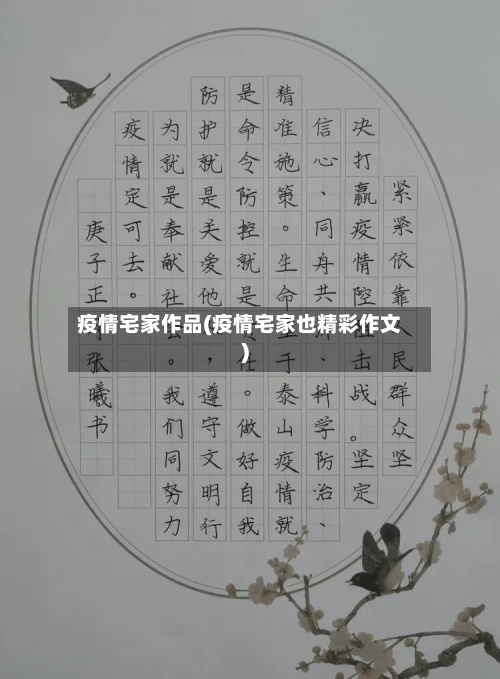 紧紧依靠民群众坚
决打赢疫情控击战。坚定
信心、同舟共、科学防治、
精准施策。生命于泰山疫情就
是命令防控就是任。做好自我
防护就是关爱他，遵守文明行
为就是奉献社。我们同努力
疫情定可去。
庚子正张曦书
疫情宅家作品(疫情宅家也精彩作文
)